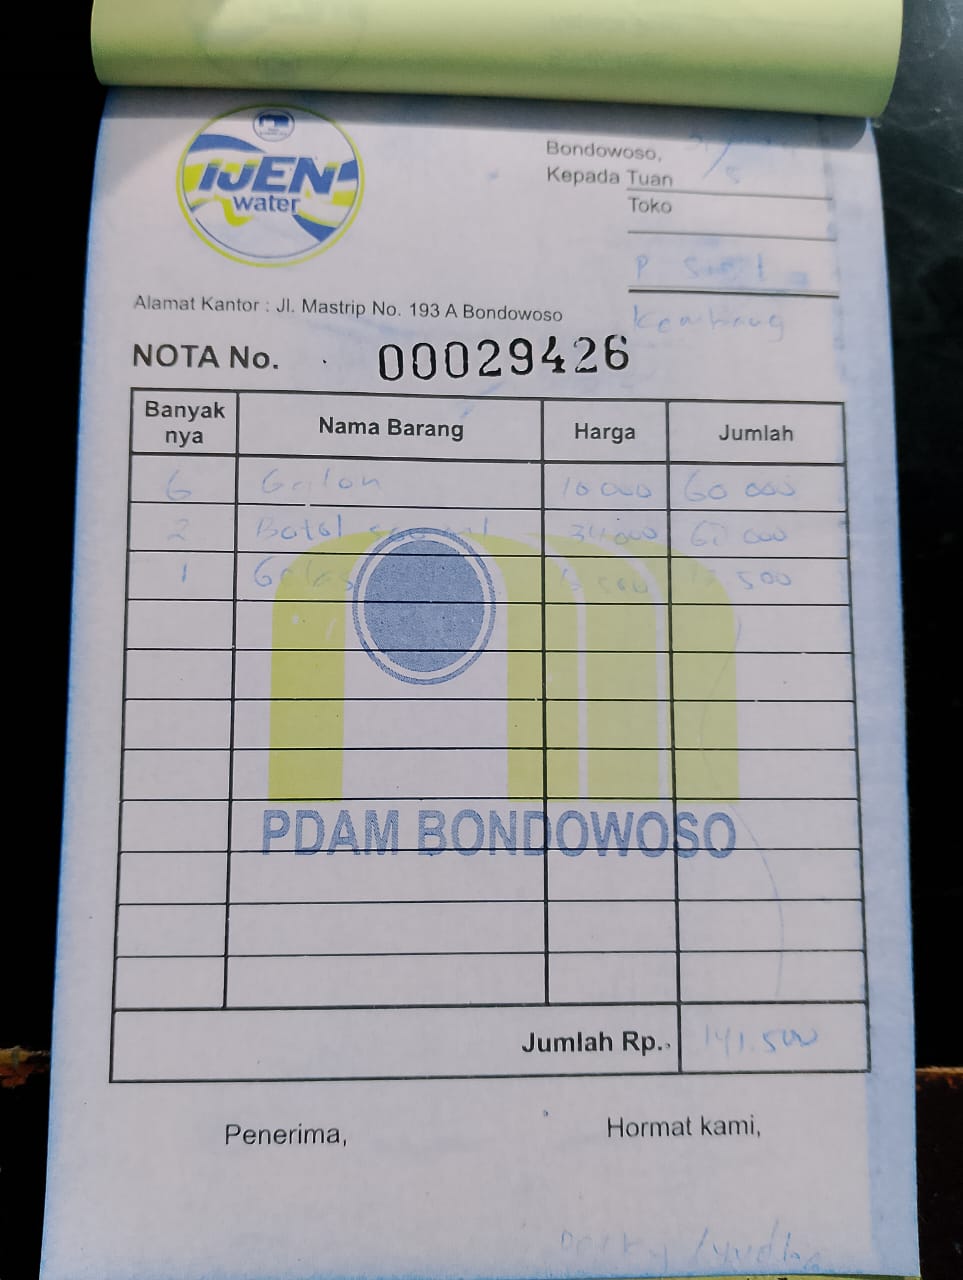 IJEN
water
Bondowoso, 31/5
Kepada Tuan
Toko
P
Kembang
Alamat Kantor : Jl. Mastrip No. 193 A Bondowoso
NOTA No. 00029426
Banyak nya Nama Barang Harga Jumlah
6 Galon 10 000 60 000
2 Botol 34 000 000
1 Gelas 500 500
PDAM BONDOWOSO
Jumlah Rp. 141.500
Penerima, Hormat kami,